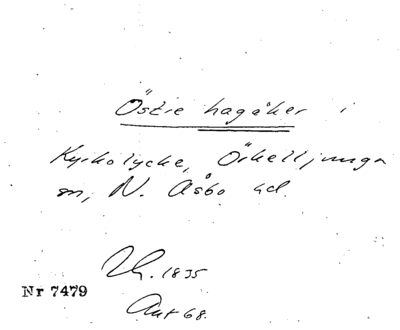 Östre hagåker i
Kyrkolycke, Örkelljunga
sn, N. Åsbo hd.
Lh. 1835
Nr 7479
Akt 68.